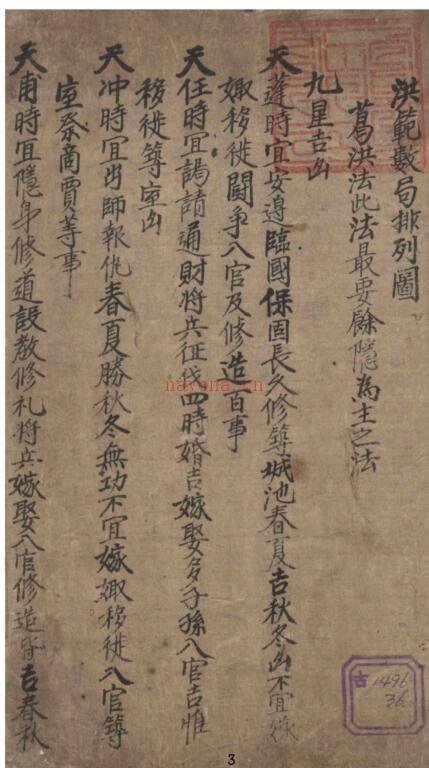 洪範數局排列圖
葛洪法此法最要餘隱為主之法
九星吉凶
天蓬時宜安邊臨國保固長久修築城池春夏吉秋冬凶不宜嫁
娵移徙闘争入官及修造百事
天任時宜謁請通財將兵征伐四時婚吉嫁娶多子孫入官吉惟
移徙築室凶
天冲時宜出師報仇春夏勝秋冬無功不宜嫁娵移徙入官築
室祭商賈等事
天甫時宜隱身修道設教修礼將兵嫁娶入官修造皆吉春秋
古 1496
36
3